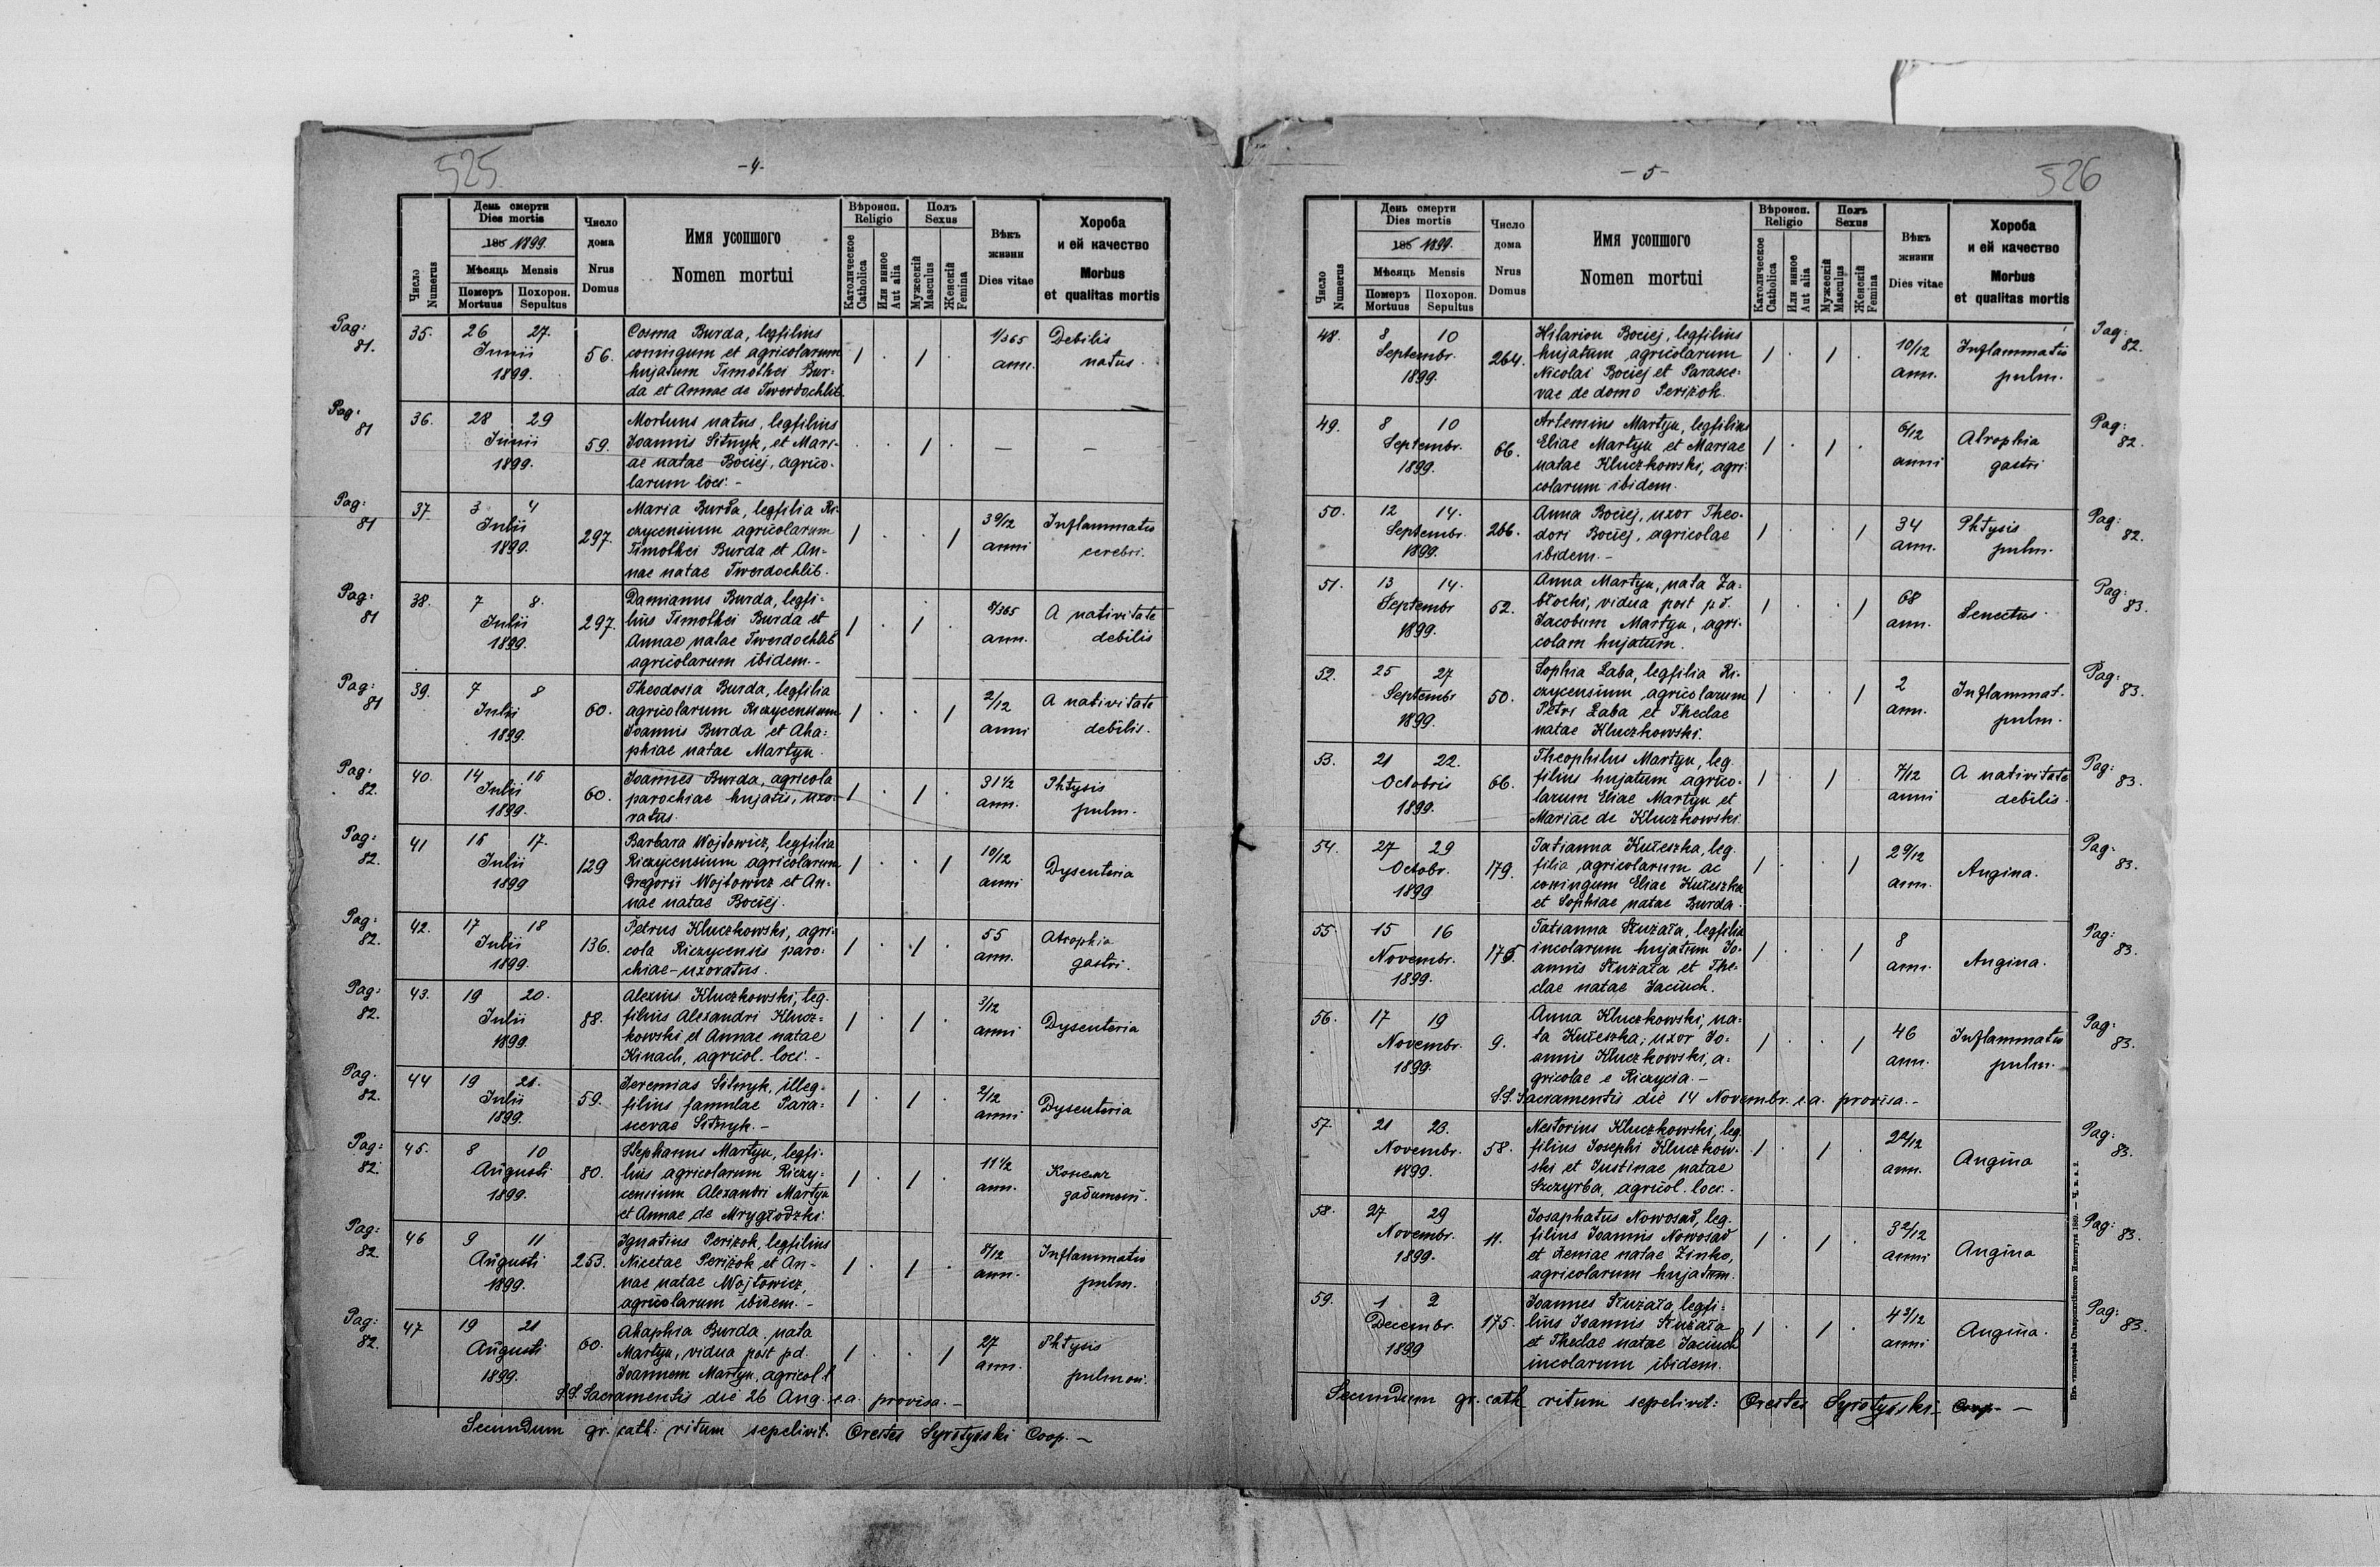 525
-4-
День смерти
Dies mortis
186 1899.
Мѣсяць Mensis
Померъ
Mortuus
Похорон.
Sepultus
Число
Numerus
Число
дома
Nrus
Domus
Имя усопшого
Nomen mortui
Вѣроисп.
Religio
Католическое
Catholica
Или инное
Aut alia
Полъ
Sexus
Мужескій
Masculus
Женскій
Femina
Вѣкъ
жизни
Dies vitae
Хороба
и ей качество
Morbus
et qualitas mortis
Pag: 81.
35. 26 27. Junii 1899. 56.
Cosma Burda, legfilius
coniugum et agricolarum
hujatum Timothei Bur-
da et Annae de Twerdochlib
1 . 1 . 1/365 ann. Debilis natus.
Pag: 81
36. 28 29 Junii 1899. 59.
Mortuus natus, legfilius
Joannis Sitnyk, et Mari-
ae natae Bociej, agrico-
larum loci. -
. . 1 . — —
Pag: 81
37. 3 4 Julii 1899. 297.
Maria Burda, legfilia Ri-
czycensium agricolarum
Timothei Burda et An-
nae natae Twerdochlib.
1 . . 1 3 9/12 anni Inflammatio cerebri.
Pag: 81
38. 7 8. Julii 1899. 297.
Damianus Burda, legfi-
lius Timothei Burda et
Annae natae Twerdochlib
agricolarum ibidem.-
1 . 1 . 8/365 ann. A nativitate debilis
Pag: 81
39. 7 8 Julii 1899. 60.
Theodosia Burda, legfilia
agricolarum Riczycensium
Joannis Burda et Aha-
phiae natae Martyn.
1 . . 1 2/12 anni A nativitate debilis.
Pag: 82.
40. 14 16 Julii 1899. 60.
Joannes Burda, agricola
parochiae hujatis, uxo-
ratus.
1 . 1 . 31 1/2 ann. Phtysis pulm.
Pag: 82.
41 16 17. Julii 1899 129
Barbara Wojtowicz, legfilia
Riczycensium agricolarum
Gregorii Wojtowicz et An-
nae natae Bociej.
1 . . 1 10/12 anni Dysenteria
Pag: 82.
42. 17 18 Julii 1899. 136.
Petrus Kluczkowski, agri-
cola Riczycensis paro-
chiae - uxoratus.
1 . 1 . 55 ann. Atrophia gastri.
Pag: 82.
43. 19 20. Julii 1899. 88.
Alexius Kluczkowski, leg-
filius Alexandri Klucz-
kowski et Annae natae
Kinach, agricol. loci. -
1 . 1 . 3/12 anni Dysenteria
Pag. 82.
44 19 21. Julii 1899. 59.
Jeremias Sitnyk, illeg-
filius famulae Para-
scevae Sitnyk. -
1 . 1 . 2/12 anni Dysenteria
Pag: 82.
45. 8 10 Augusti 1899. 80.
Stephanus Martyn, legfi-
lius agricolarum Riczy-
censium Alexandri Martyn
et Annae de Mrygłodzki.
1 . 1 . 11 1/2 ann.
Pag: 82.
46 9 11 Augusti 1899. 253.
Ignatius Periżok, legfilius
Nicetae Periżok et An-
nae natae Wojtowicz,
agricolarum ibidem. -
1 . 1 . 8/12 ann. Inflammatio pulm.
Pag: 82.
47 19 21 Augusti 1899. 60.
Ahaphia Burda nata
Martyn, vidua post pd.
Joannem Martyn, agricol l
1 . . 1 27 ann. Phtysis pulmon.
S.S. Sacramentis die 26 Aug. e.a. provisa. -
Secundum gr. cath: ritum sepelivit. Orestes Syrotyński Coop. -
526
-5-
День смерти
Dies mortis
186 1899.
Мѣсяць Mensis
Померъ
Mortuus
Похорон.
Sepultus
Число
Numerus
Число
дома
Nrus
Domus
Имя усопшого
Nomen mortui
Вѣроисп.
Religio
Католическое
Catholica
Или инное
Aut alia
Полъ
Sexus
Мужескій
Masculus
Женскій
Femina
Вѣкъ
жизни
Dies vitae
Хороба
и ей качество
Morbus
et qualitas mortis
48. 8 10 Septembr. 1899. 264.
Hilarion Bociej, legfilius
hujatum agricolarum
Nicolai Bociej et Parasce-
vae de domo Periżok.
1 . 1 . 10/12 ann. Inflammatio pulm.
Pag: 82.
49. 8 10 Septembr. 1899. 66.
Artemius Martyn, legfilius
Eliae Martyn et Mariae
natae Kluczkowski, agri-
colarum ibidem.
1 . 1 . 6/12 anni Atrophia gastri
Pag: 82.
50. 12 14. Septembr. 1899. 266.
Anna Bociej, uxor Theo-
dori Bociej, agricolae
ibidem. -
1 . . 1 34 ann. Phtysis pulm.
Pag: 82.
51. 13 14. Septembr 1899. 52.
Anna Martyn, nata Za-
błocki, vidua post pd.
Jacobum Martyn, agri-
colam hujatum.
1 . . 1 68 ann. Senectus.
Pag: 83.
52. 25 27 Septembr 1899. 50.
Sophia Łaba, legfilia Ri-
czycensium agricolarum
Petri Łaba et Theclae
natae Kluczkowski.
1 . . 1 2 ann. Inflammat. pulm.
Pag: 83.
53. 21 22. Octobris 1899. 66.
Theophilus Martyn, leg.
filius hujatum agrico-
larum Eliae Martyn et
Mariae de Kluczkowski.
1 . 1 . 7/12 anni A nativitate debilis.
Pag: 83.
54. 27 29 Octobr. 1899 179.
Tatianna Kułeszka, leg.
filia agricolarum ac
coningum Eliae Kułeszka
et Sophiae natae Burda.
1 . . 1 2 9/12 ann. Angina.
Pag: 83.
55 15 16 Novembr. 1899. 175.
Tatianna Służała, legfilia
incolarum hujatum Jo-
annis Służała et The-
clae natae Jaciuch.
1 . . 1 8 ann. Angina.
Pag: 83.
56. 17 19 Novembr. 1899. 9.
Anna Kluczkowski, na-
ta Kułeszka, uxor Jo-
annis Kluczkowski, a-
gricolae e Riczycia. -
1 . . 1 46 ann. Inflammatio pulm.
Pag: 83.
S.S. Sacramentis die 14 Novembr. e.a. provisa. -
57. 21 23. Novembr. 1899. 58.
Nestorius Kluczkowski, leg.
filius Josephi Kluczkow-
ski et Justinae natae
Szczyrba, agricol. loci. -
1 . 1 . 2 2/12 ann. Angina
Pag: 83.
58. 27 29 Novembr. 1899. 11.
Josaphatus Nowosad, leg.
filius Joannis Nowosad
et Xeniae natae Zinko,
agricolarum hujatum.
1 . 1 . 3 2/12 anni Angina
Pag: 83.
59. 1 2 Decembr. 1899 175.
Joannes Służała, legfi-
lius Joannis Służała
et Theclae natae Jaciuch
incolarum ibidem.
1 . 1 . 4 2/12 anni Angina.
Pag: 83.
Secundum gr. cath ritum sepelivit: Orestes Syrotyński Coop. -
Изъ типографіи Ставропигійского Института